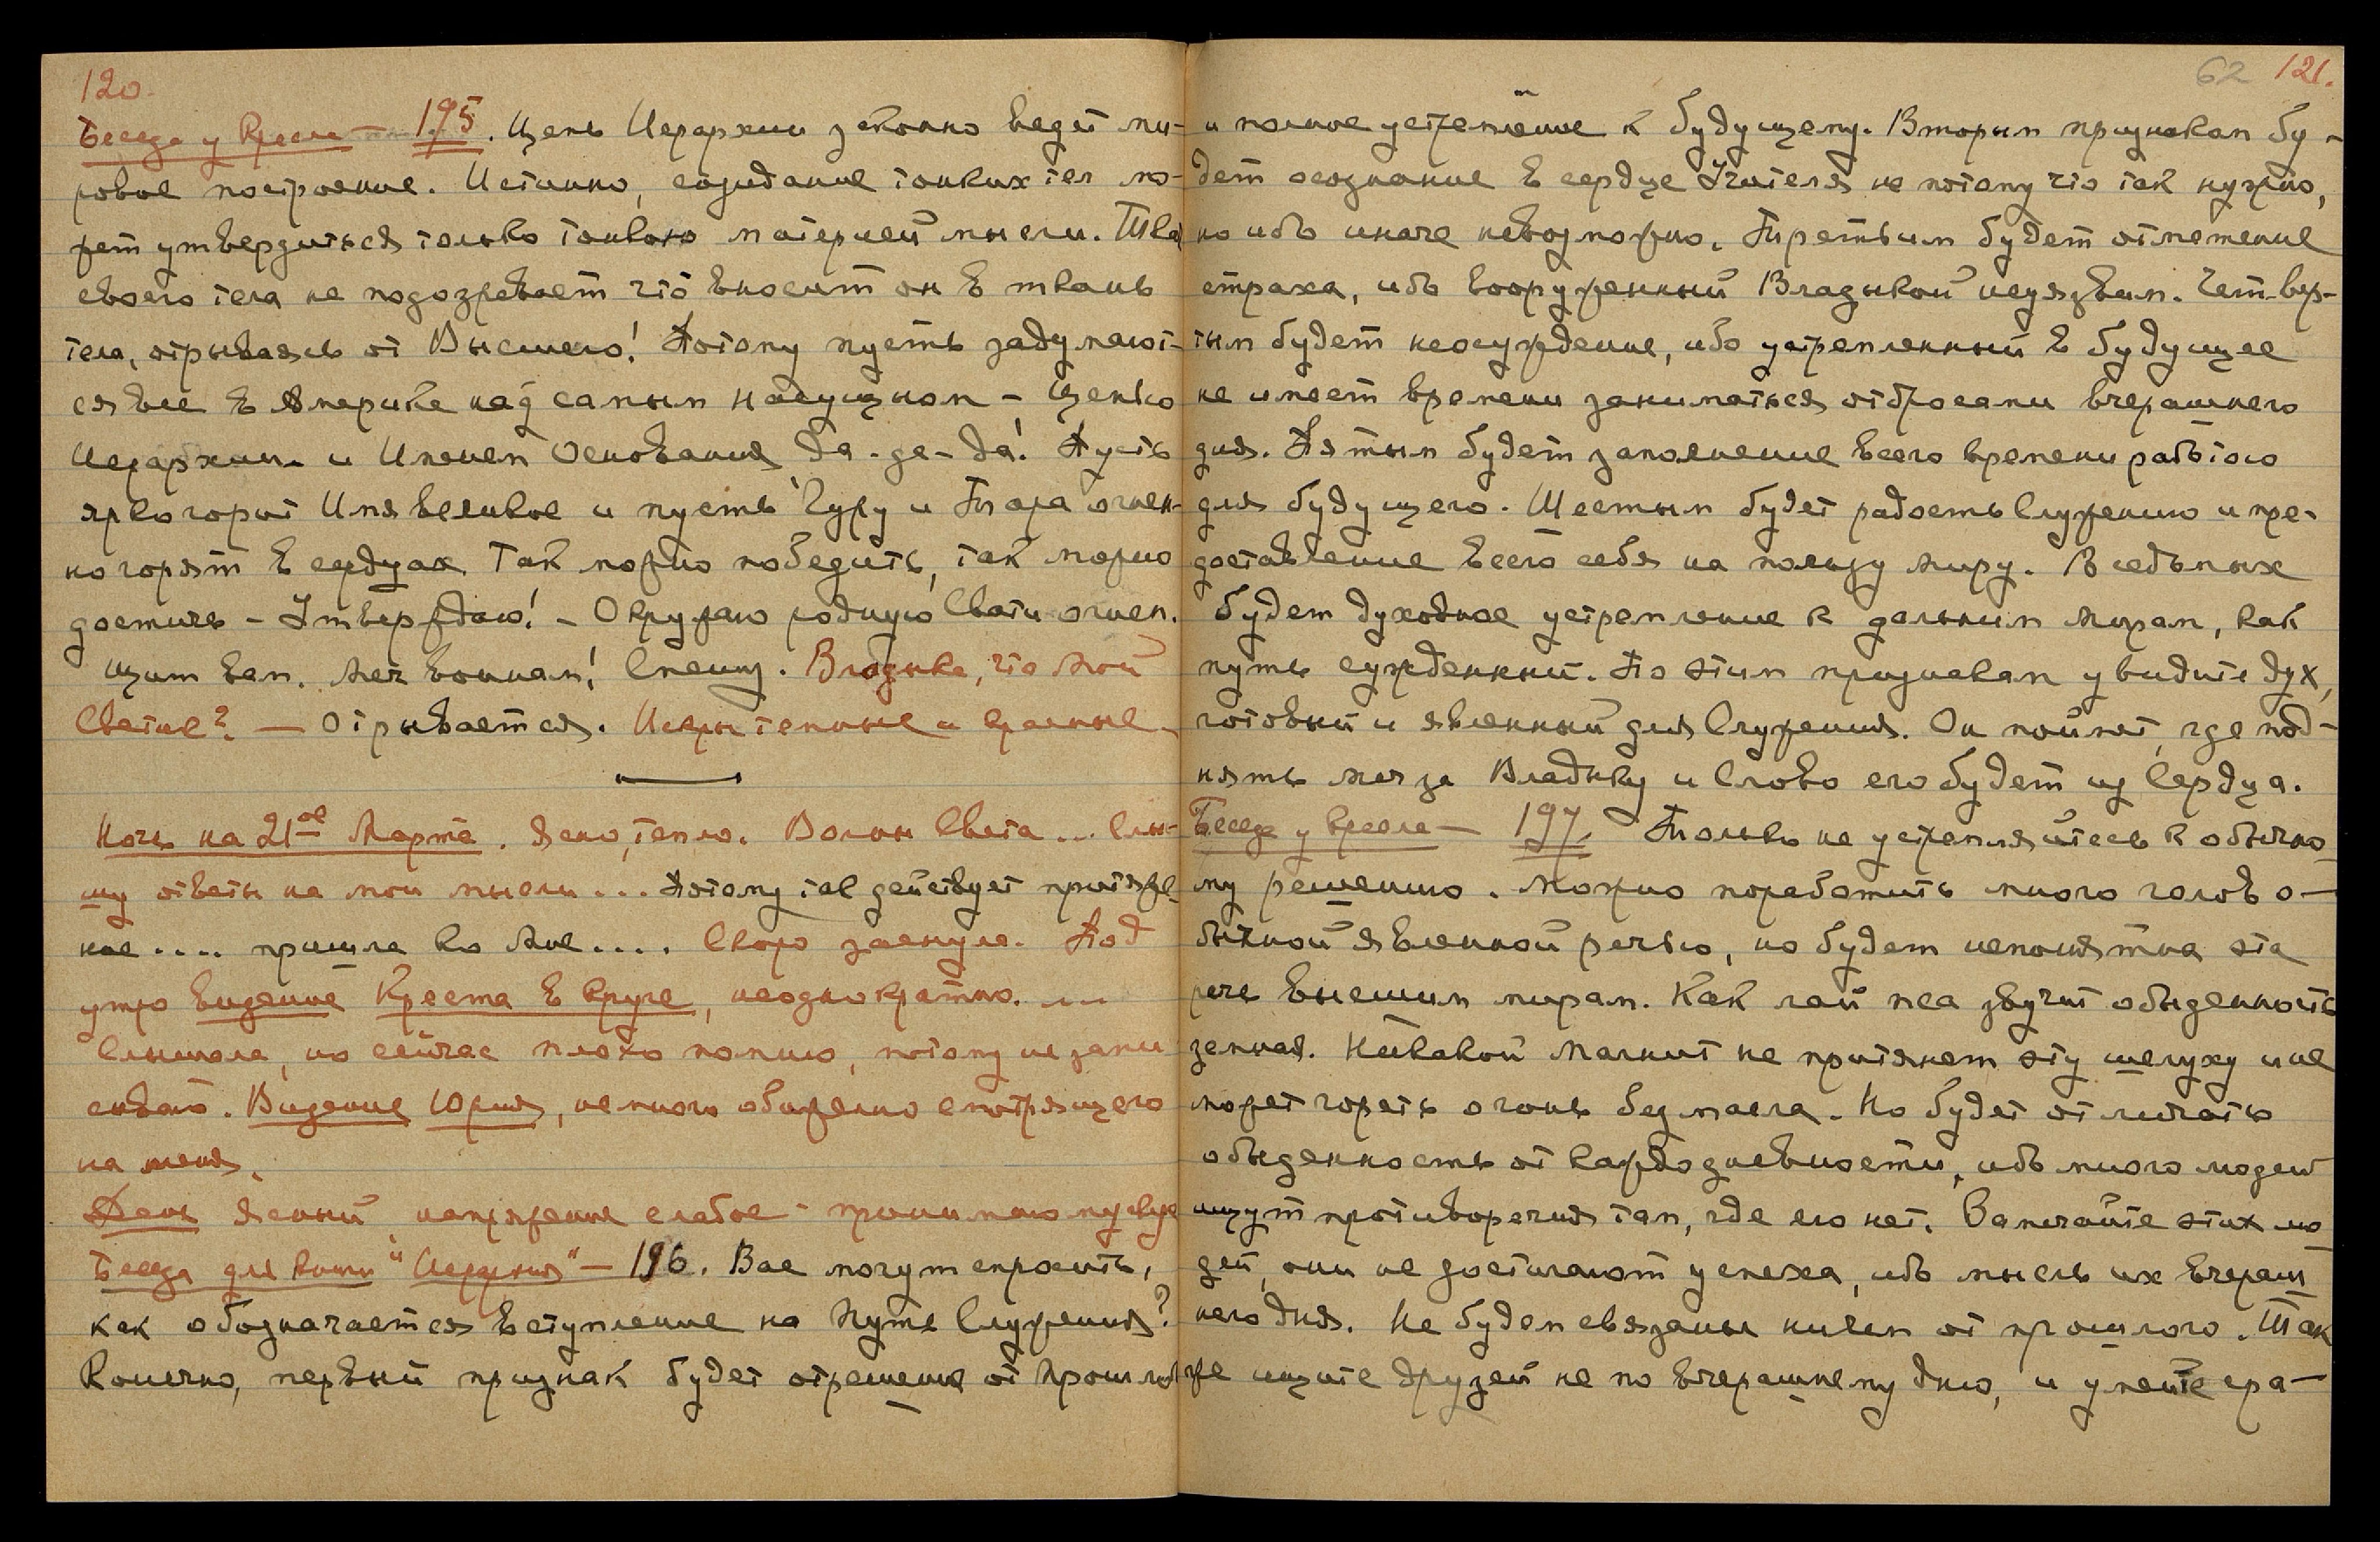 120.
Беседа у Кресла — 195. Цепь Иерархии законно ведет ми-
ровое построение. Истинно, созидание тонких тел мо-
жет утвердиться только тонкою материей мысли. Ткач
своего тела не подозревает что вносит он в ткань
тела, отрываясь от Высшего! Потому пусть задумают-
ся все в Америке над самым насущном – Цепью
Иерархии и Именем Основания Да-да-да! Пусть
ярко горит Имя великое и пусть Гуру и Тара огнен-
но горят в сердцах Так можно победить, так можно
достичь – Утверждаю! – Окружаю родную Свати огнем.
Щит вам. Меч воинам! Спешу. Владыка, что мой
Святие? — Отрывается. Искры темные и красные
Ночь на 21ое Марта. Ясно, тепло. Волны Света... Слы-
шу ответы на мои мысли... Потому так действует притяже-
ние.... пришла ко Мне.... Скоро заснула. Под
утро Видение Креста в круге, неоднократно. ...
Слышала, но сейчас плохо помню, потому не запи
сываю. Видение Юрия, немного обиженно смотрящего
на меня.
День Ясный напряжение слабое – принимаю
Беседа для книги "Иерархия" – 196. Вас могут спросить,
как обозначается вступление на Путь Служения?
Конечно, первый признак будет отрешение от прошлого
62 121.
и полное устремление к будущему. Вторым признаком бу-
дет осознание в сердце Учителя не потому что так нужно,
но ибо иначе невозможно. Третьим будет отметение
страха, ибо вооруженный Владыкой неуязвим. Четвер-
тым будет неосуждение, ибо устремленный в будущее
не имеет времени заниматься отбросами вчерашнего
дня. Пятым будет заполнение всего времени работою
для будущего. Шестым будет радость Служению и пре-
доставление всего себя на пользу миру. В седьмых
будет духовное устремление к дальним мирам, как
путь сужденный. По этим признакам увидите дух,
готовый и явленный для Служения. Он поймет, где под-
нять меч за Владыку и Слово его будет из Сердца.
Беседа у кресла — 197. Только не устремляйтесь к обычно-
му решению. Можно поработить много голов о-
бычной явленной речью, но будет непонятна эта
речь высшим мирам. Как лай пса звучит обыденность
земная. Никакой Магнит не притянет эту шелуху и не
может гореть огонь без масла. Но будет отличать
обыденность от каждодневности, ибо много людей
ищут противоречия там, где его нет. Замечайте этих лю
дей, они не достигают успеха, ибо мысль их вчераш
него дня. Не будем связаны ничем от прошлого. Так
же ищите друзей не по вчерашнему дню, и умейте сра-